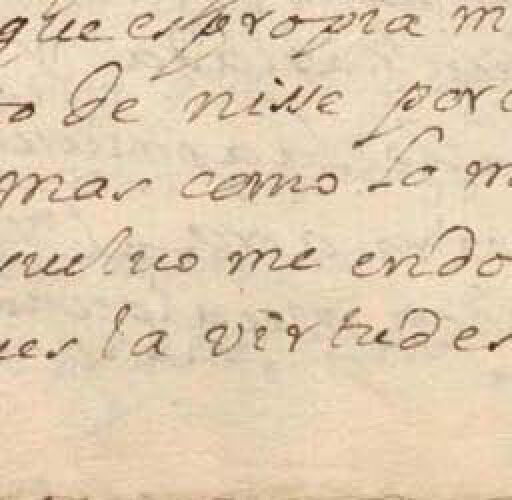 que es propria m
to de nisse porq
mas como lo m
vuelvo me endo
ues la virtud es